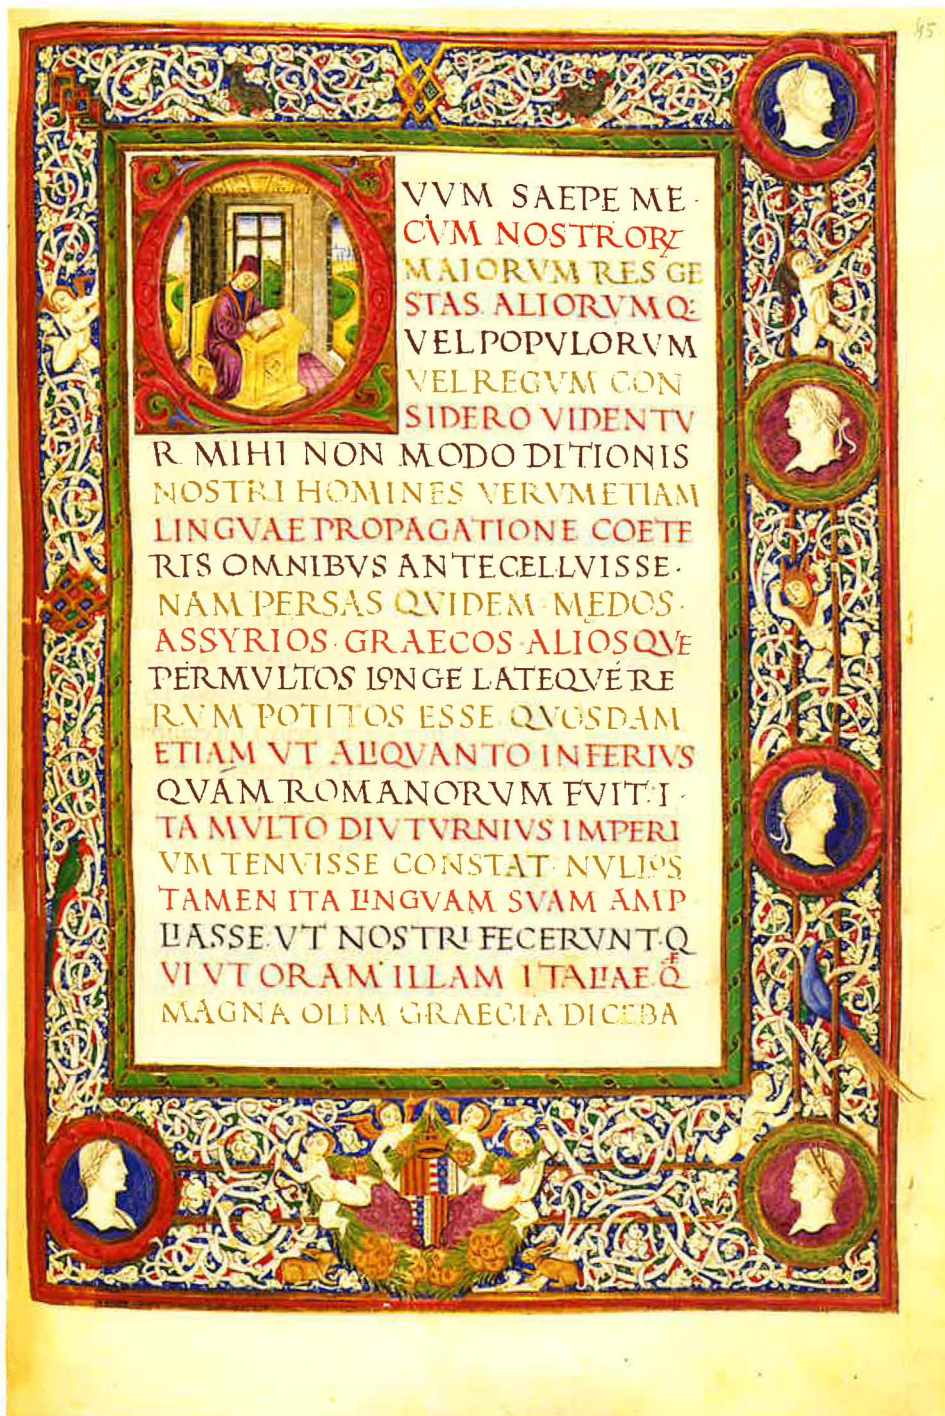 45
VVM SAEPE ME·
CVM NOSTRORꝜ
MAIORVM RES GE
STAS ALIORVMQ:
VEL POPVLORVM
VEL REGVM CON
SIDERO VIDENTV
R MIHI NON MODO DITIONIS
NOSTRI HOMINES VERVM ETIAM
LINGVAE PROPAGATIONE COETE
RIS OMNIBVS ANTECELLVISSE·
NAM PERSAS QVIDEM·MEDOS·
ASSYRIOS·GRAECOS·ALIOSQVE
PERMVLTOS LONGE LATEQVE RE
RVM POTITOS ESSE QVOSDAM
ETIAM VT ALIQVANTO INFERIVS
QVAM ROMANORVM FVIT·I·
TA MVLTO DIVTVRNIVS IMPERI
VM TENVISSE CONSTAT·NVLLOS
TAMEN ITA LINGVAM SVAM AMP
LIASSE·VT NOSTRI FECERVNT·Q
VI VT ORAM ILLAM ITALIAE·Q̄
MAGNA OLIM GRAECIA DICEBA